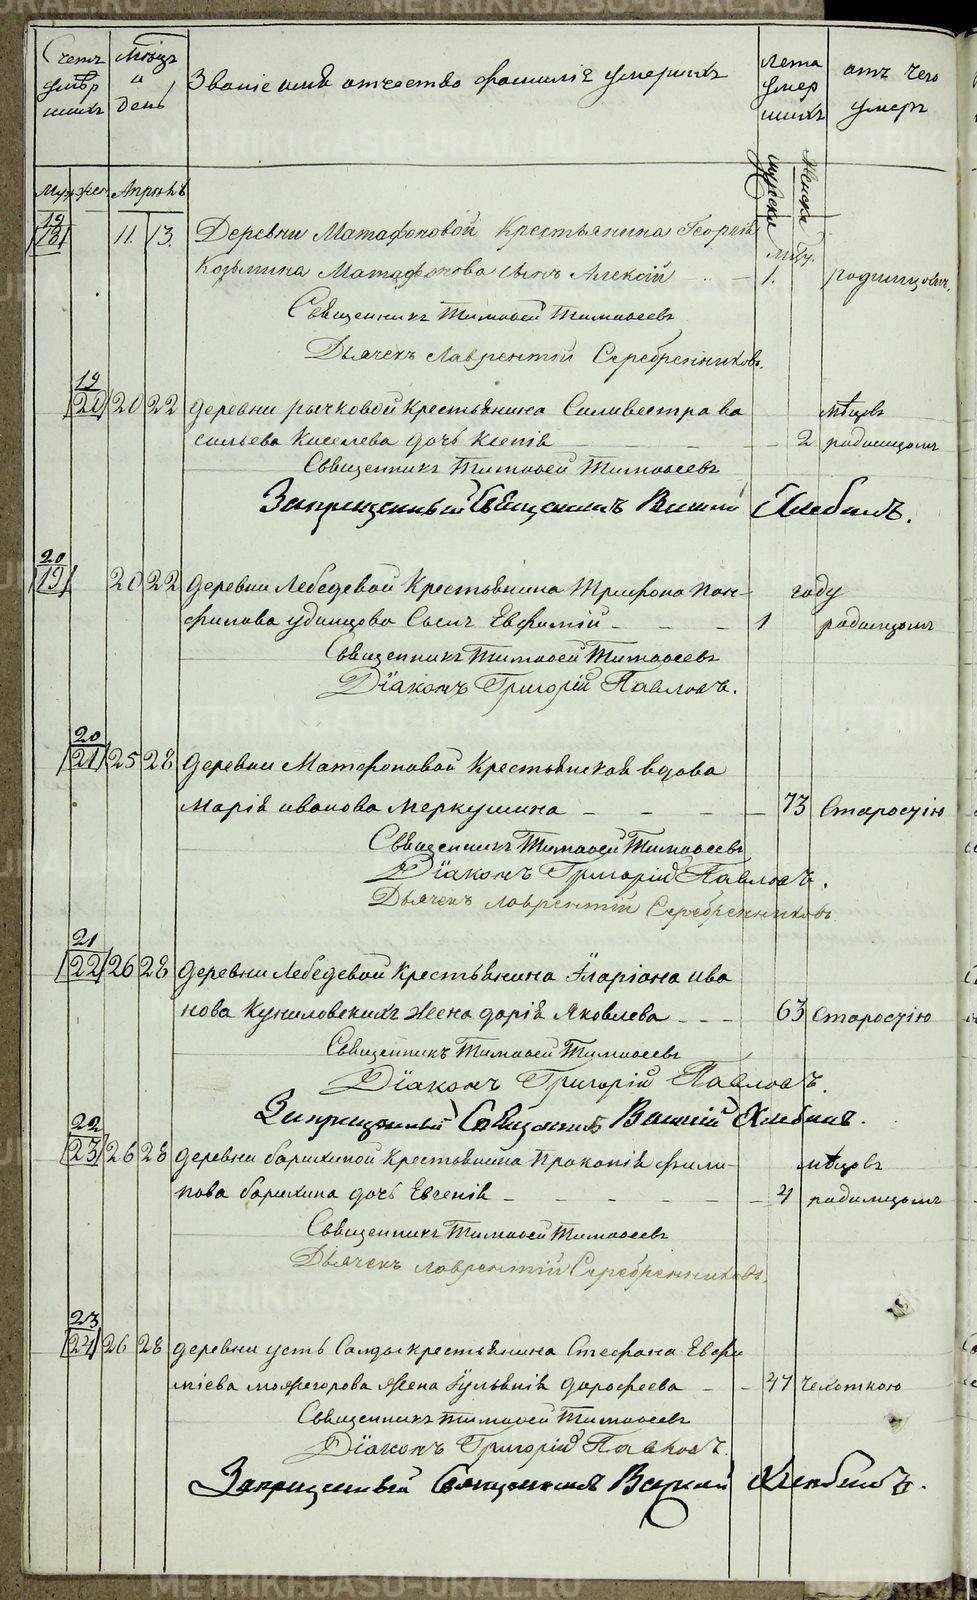 Счетъ умершихъ
Мѣсяцъ и день
Званіе имя отчество фамилія умершихъ
лета умершихъ
отъ чего умеръ
Муж. Жен. Апрѣль
мужска Женска
19
18 11. 13. Деревни Матафоновой Крестьянина Георгія
Козьмина Матафонова сынъ Алексій 1. родимцомъ.
Священникъ Тимофей Тимофеевъ
Дьячекъ Лаврентій Серебренниковъ.
19
20 20 22 деревни рычковой крестьянина Силивестра ва мѣцовъ
сильева Киселева дочь Ксенія 2 родимцомъ
Священникъ Тимофей Тимофеевъ
Запрещенный Священникъ Хлебинъ.
20
19 20 22 деревни Лебедевой Крестьянина Трифона пан- году
филова удинцова Сынъ Евфимій 1 родимцомъ
Священникъ Тимофей Тимофеевъ
Діаконъ Григорій Павловъ.
20
21 25 28 деревни Матафоновой Крестьянская вдова
Марія иванова Меркушина 73 Старостію
Священникъ Тимофей Тимофеевъ
Діаконъ Григорій Павловъ.
Дьячекъ лаврентій Серебренниковъ
21
22 26 28 деревни Лебедевой Крестьянина Иларіона ива
нова Куниловскихъ жена дарія Яковлева 63 Старостію
Священникъ Тимофей Тимофеевъ
Діаконъ Григорій Павловъ.
Запрещенный Священникъ Хлебинъ.
22
23 26 28 деревни бархиной Крестьянина Прокопія фили- мѣцовъ
пова бархина дочь Евгенія 4 родимцомъ
Священникъ Тимофей Тимофеевъ
Дьячекъ лаврентій Серебренниковъ.
23
24 26 28 деревни усть Салды крестьянина Стефана Евфи
міева можегорова жена Іульянія дорофеева 47 чехоткою
Священникъ Тимофей Тимофеевъ
Діаконъ Григорій Павловъ.
Запрещенный Священникъ Хлебинъ.
METRIKI.GASO-URAL.RU